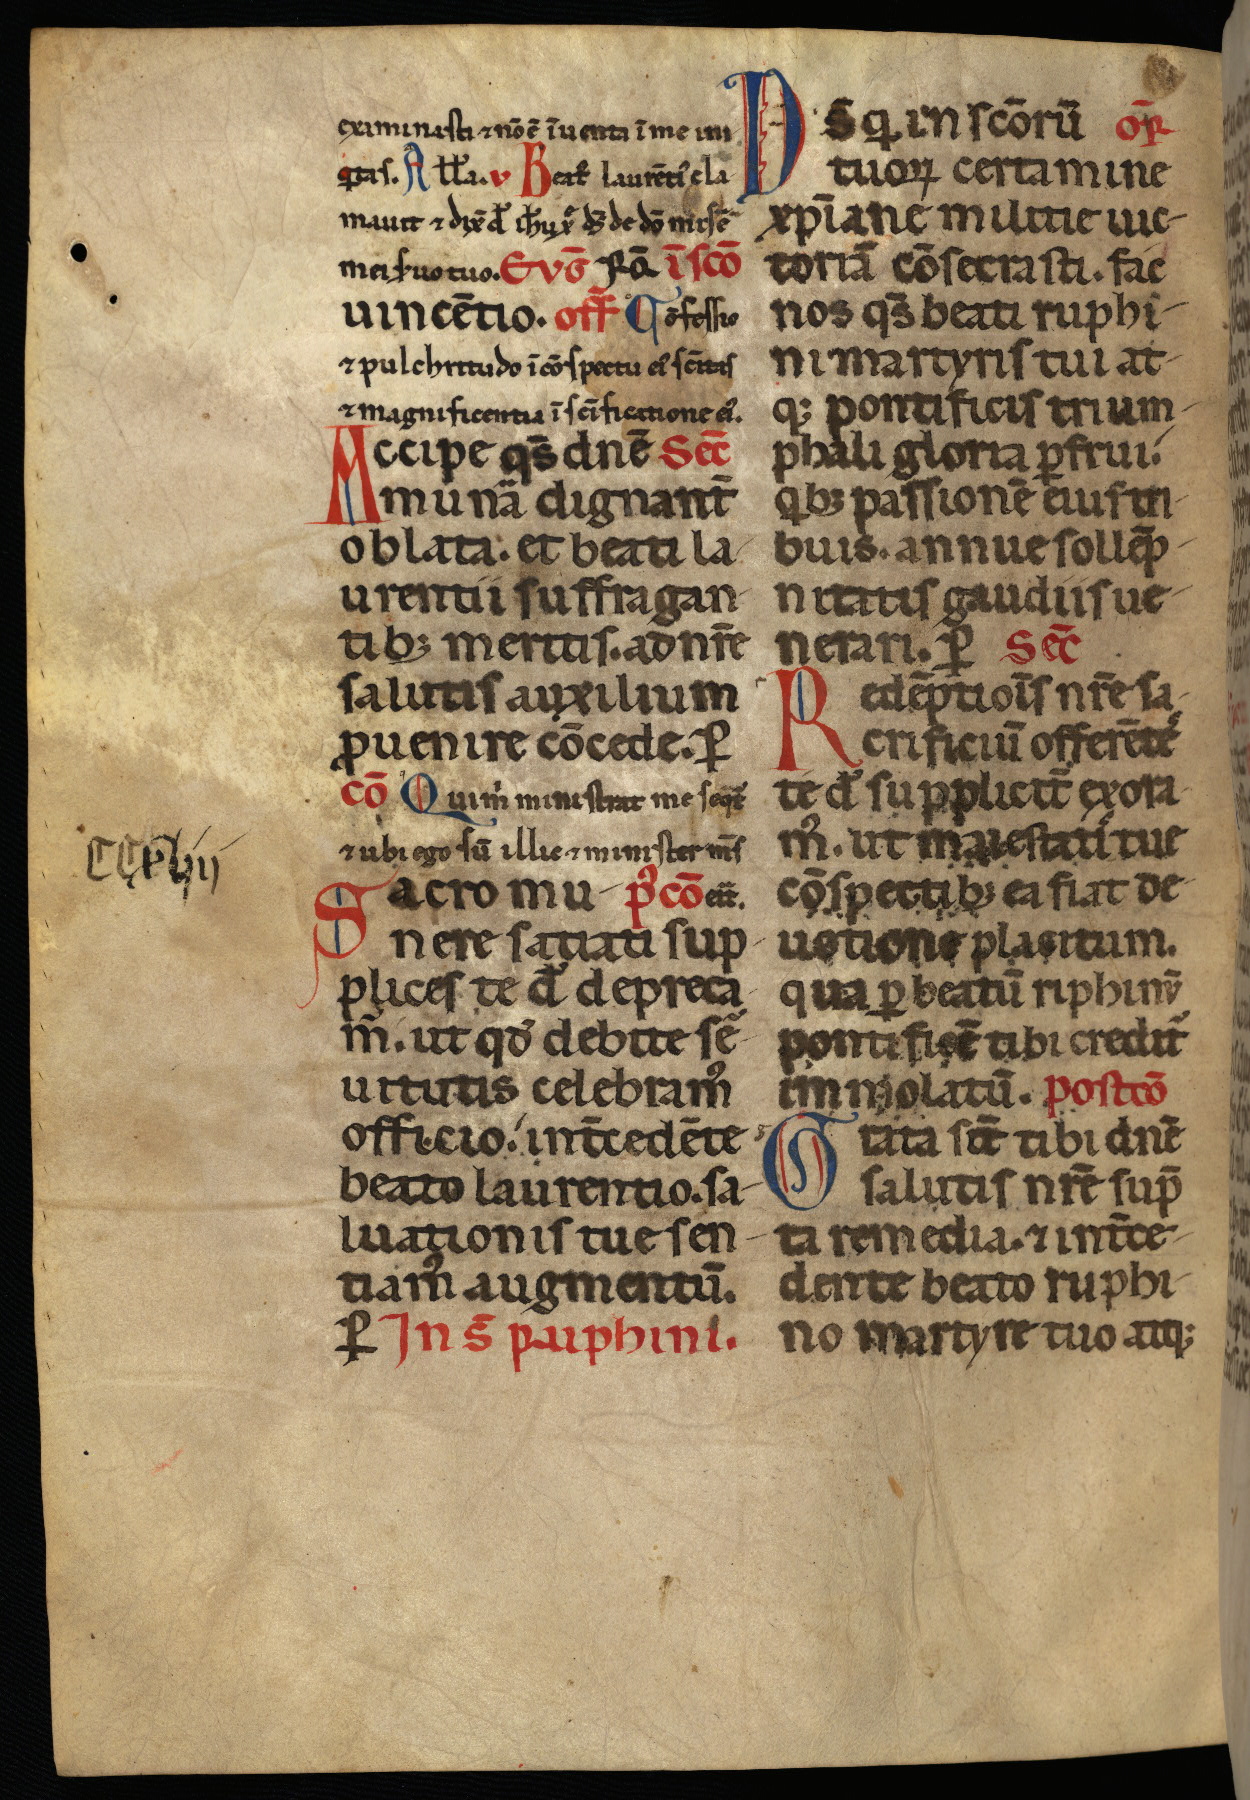 exminasti ⁊ nōē īuenta īme ini
qͥtas. All'a. v Beatꝰ laurētiꝰ cla
mauit ⁊ dix̄ dꝰ ihū xp̄e ds̄ de dō misē
mei ẜuo tuo. Evḡ Rā ī scō
uincētio. off Cōfessio
⁊ pulchritudo ī cōspectu eiꝰ sc̄itas
⁊ magnificentia ī sc̄ificatione eiꝰ.
Accipe qs̄ dnē Sec̄
munā dignant̄
oblata. et beati la-
urentii suffragan-
tibꝫ meritis. ad nr̄e
salutis auxilium
ꝓuenire cōcede. ꝑ
cō Qui mͥ ministrat me seqͣt̄
⁊ ubi ego sū illic ⁊ minister mꝰs
Sacro mu- pꝰcō erit.
nere satiati sup-
plices te dn̄e depreca
mꝰ. ut qd̄ debite sē-
uitutis celebramꝰ
officio. int̄cedēte
beato laurentio. sa-
luationis tue sen-
tiamꝰ augmentū.
ꝑ In s̄ ruphini.
Ds̄ qi in scōrū or̄
tuoꝝ certamine
xp̄iane militie uic-
toriā cōsecrasti. fac
nos qs̄ beati ruphi-
ni martyris tui at-
qꝫ pontificis trium-
phali gloria ꝑfrui.
qͥbꝫ passionē eius tri-
buis. annue sollēp-
nitatis gaudiis ue-
nerari. ꝑ Sec̄
Redēptiōis nr̄e sa-
crificiū offerētes
te dn̄e suppliciter exora
mꝰ. ut maiestatis tue
cōspectibꝫ ea fiat de-
uotione placitum.
qua ꝑ beatū riphinū
pontificē tibi credit̄
immolatū. postcō
Grata sīt tibi dnē
salutis nr̄e sūp
ta remedia. ⁊ int̄ce-
dente beato ruphi-
no martyre tuo atqꝫ
CCxlvij